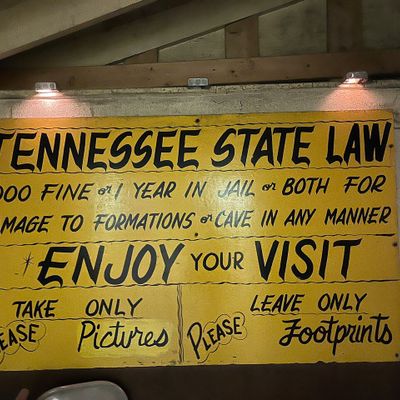 TENNESSEE STATE LAW
000 FINE or 1 YEAR IN JAIL or BOTH FOR
MAGE TO FORMATIONS or CAVE IN ANY MANNER
ENJOY YOUR VISIT
TAKE ONLY
EASE Pictures
LEAVE ONLY
PLEASE Footprints